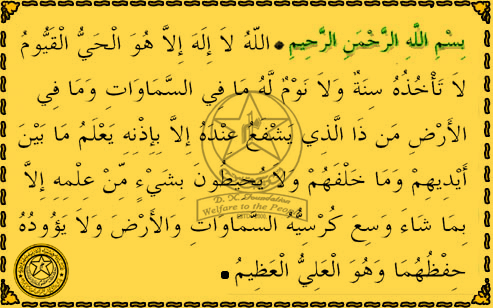 بِسْمِ اللَّهِ الرَّحْمَنِ الرَّحِيمِ • اللّهُ لاَ إِلَهَ إِلاَّ هُوَ الْحَيُّ الْقَيُّومُ
لاَ تَأْخُذُهُ سِنَةٌ وَلاَ نَوْمٌ لَّهُ مَا فِي السَّمَاوَاتِ وَمَا فِي
الأَرْضِ مَن ذَا الَّذِي يَشْفَعُ عِنْدَهُ إِلاَّ بِإِذْنِهِ يَعْلَمُ مَا بَيْنَ
أَيْدِيهِمْ وَمَا خَلْفَهُمْ وَلاَ يُحِيطُونَ بِشَيْءٍ مِّنْ عِلْمِهِ إِلاَّ
بِمَا شَاء وَسِعَ كُرْسِيُّهُ السَّمَاوَاتِ وَالأَرْضَ وَلاَ يَؤُودُهُ
حِفْظُهُمَا وَهُوَ الْعَلِيُّ الْعَظِيمُ .
Foundation
Welfare to the People